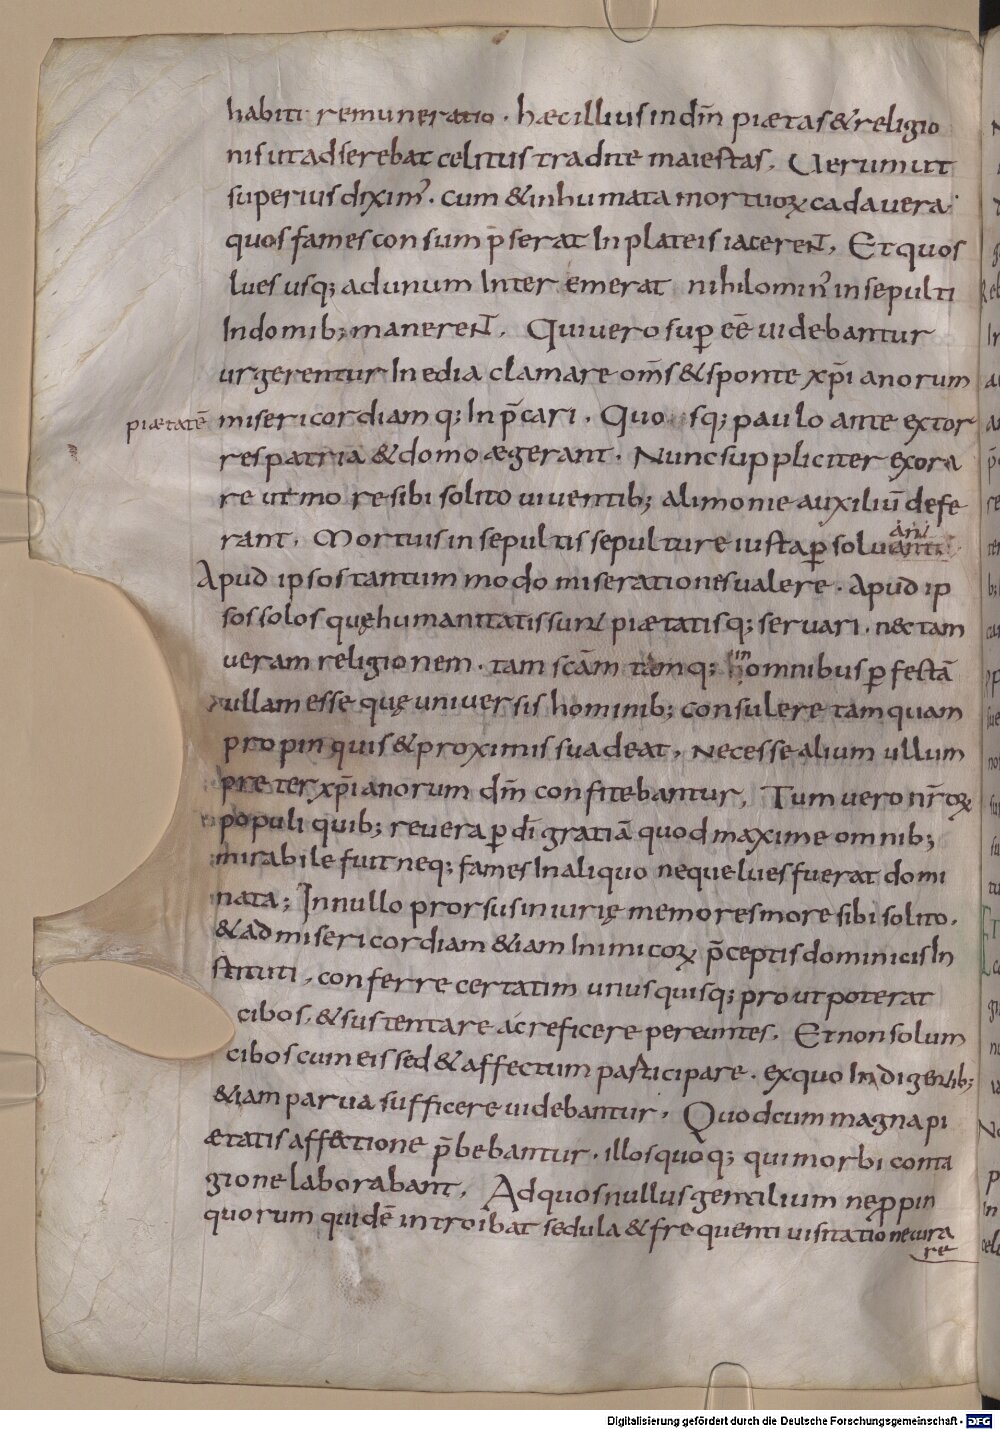 habiti remuneratio · hæc illius in dm̄ piætas & religio
nis ut adserebat celitus tradite maiestas. Uerum ut
superius diximꝰ · cum & inhumata mortuoꝝ cadauera
quos fames consump̄serat In plateis iacerent, Et quos
lues usq; ad unum Interemerat nihilominꝰ insepulti
Indomib; manerent. Qui uero suꝑ eē uidebantur
urgerentur Inedia clamare om̄s & sponte xp̄ianorum
piætatē
misericordiamq; Inp̄cari. Quo sq; paulo ante extor
res patria & domo ægerant. Nunc suppliciter exora
re ut more sibi solito uiuentib; alimonie auxiliū defe
rant. Mortuis insepultis sepulture iusta ꝑsoluant
Apud ipsos tantummodo miserationes ualere. Apud ip
sos solos quę humanitatis sunt piætatisq; seruari. nec tam
ueram religionem. tam scām tamq; in omnibus ꝑfectā
ullam esse quę uniuersis hominib; consulere tamquam
propinquis & proximis suadeat, Necesse alium ullum
preter xp̄ianorum dm̄ confitebantur, Tum uero nr̄oꝝ
populi quib; reuera ꝑ dī gratiā quod maxime omnib;
mirabile fuit neq; fames Inaliquo neque lues fuerat domi
nata; Innullo prorsus iniurię memores more sibi solito.
& ad misericordiam &iam Inimicoꝝ p̄ceptis dominicis In
stituti, conferre certatim unusquisq; prout poterat
cibos, & sustentare ac reficere pereuntes. Et non solum
cibos cum eis sed & affectum pasticipare. ex quo Indigentib;
&iam parua sufficere uidebantur, Quod cum magna pi
ætatis affectione p̄bebantur. illos quoq; qui morbi conta
gione laborabant, Ad quos nullus gentilium ne ꝓpin
quorum quidē introibat sedula & frequenti uisitatione cura
re
Digitalisierung gefördert durch die Deutsche Forschungsgemeinschaft - DFG